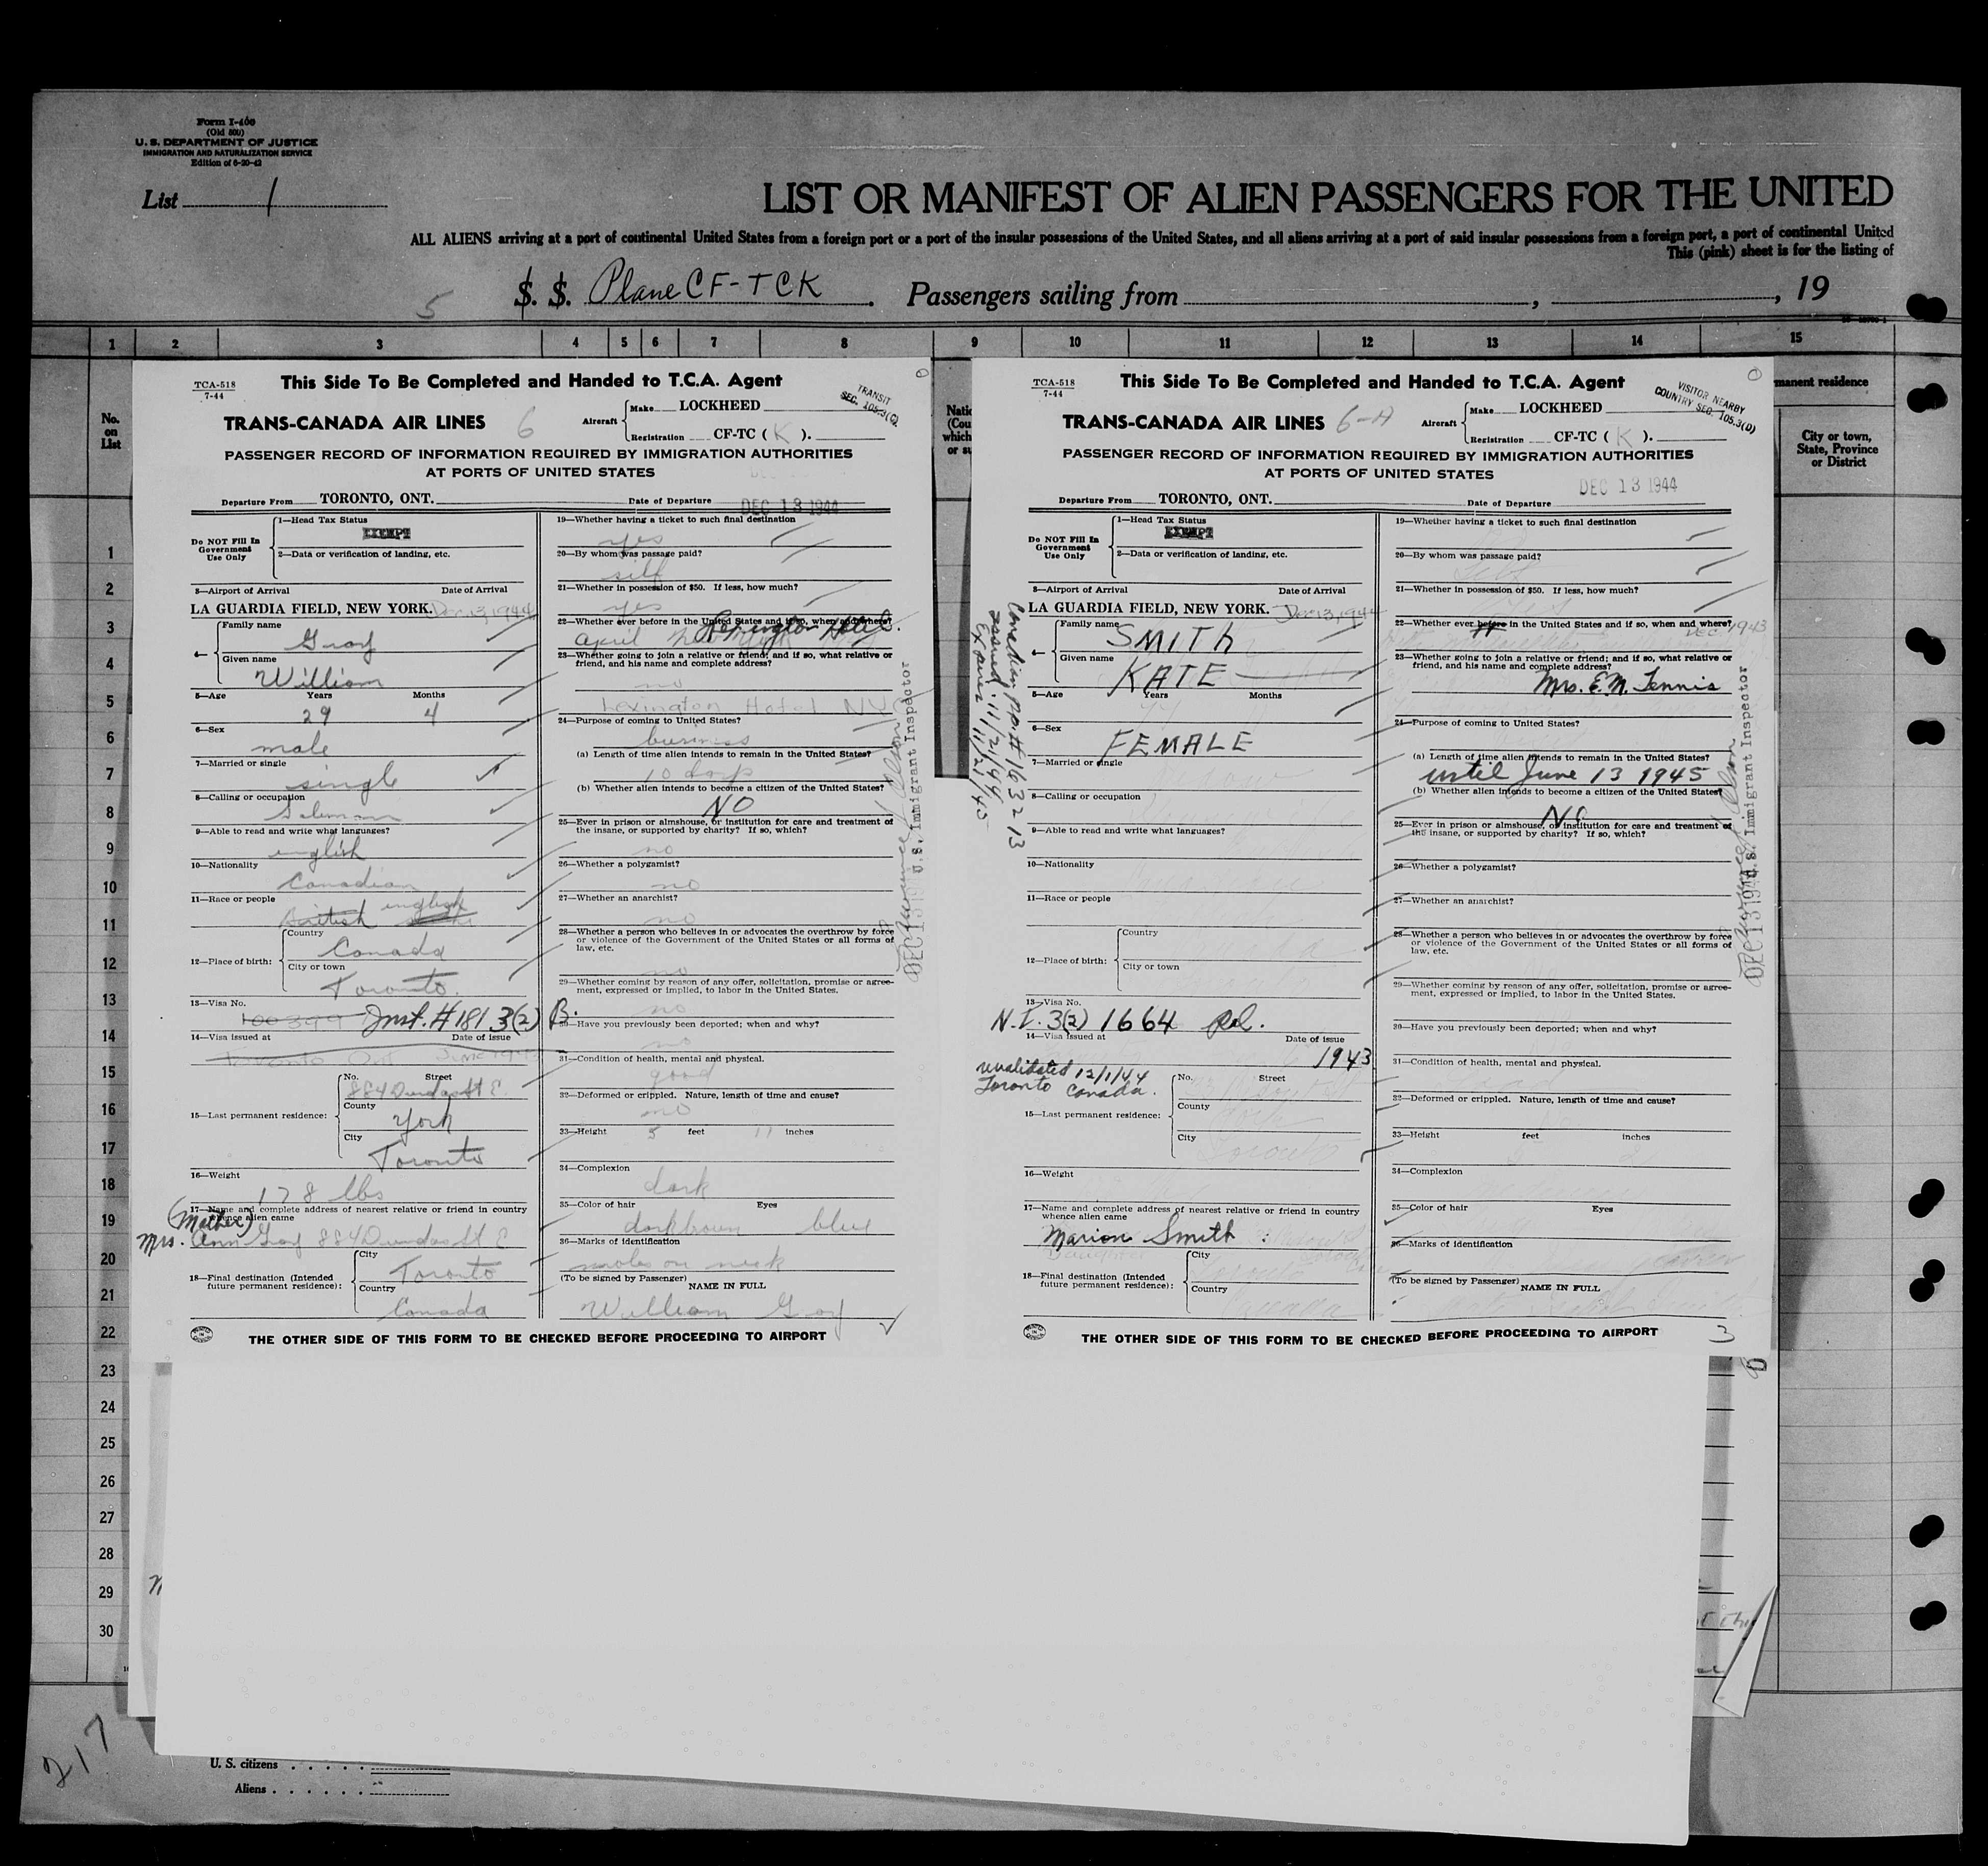 Form I-400
(Old 500)
U. S. DEPARTMENT OF JUSTICE
IMMIGRATION AND NATURALIZATION SERVICE
Edition of 6-20-42
List 1
LIST OR MANIFEST OF ALIEN PASSENGERS FOR THE UNITED
ALL ALIENS arriving at a port of continental United States from a foreign port or a port of the insular possessions of the United States, and all aliens arriving at a port of said insular possessions from a foreign port, a port of continental United
This (pink) sheet is for the listing of
5 S. S. Plane CF-TCK. Passengers sailing from , , 19
1 2 3 4 5 6 7 8 9 10 11 12 13 14 15
No. on List
manent residence
City or town, State, Province or District
1
2
3
4
5
6
7
8
9
10
11
12
13
14
15
16
17
18
19
20
21
22
23
24
25
26
27
28
29
30
TCA-518
7-44
This Side To Be Completed and Handed to T.C.A. Agent
TRANSIT
SEC. 105.3(C)
TRANS-CANADA AIR LINES 6
Aircraft Make LOCKHEED
Registration CF-TC ( K ).
PASSENGER RECORD OF INFORMATION REQUIRED BY IMMIGRATION AUTHORITIES
AT PORTS OF UNITED STATES
Departure From TORONTO, ONT. Date of Departure DEC 13 1944
Do NOT Fill In Government Use Only
1—Head Tax Status
EXEMPT
2—Data or verification of landing, etc.
3—Airport of Arrival Date of Arrival
LA GUARDIA FIELD, NEW YORK. Dec 13, 1944
4— Family name
Gray
Given name
William
5—Age Years Months
29 4
6—Sex
male
7—Married or single
single
8—Calling or occupation
9—Able to read and write what languages?
english
10—Nationality
Canadian
11—Race or people
British english
12—Place of birth: Country
Canada
City or town
Toronto.
13—Visa No.
100399 Inst. #181 3(2) B.
14—Visa issued at Date of issue
Toronto Ont June 194
15—Last permanent residence: No. Street
884 Dundas St E.
County
York
City
Toronto
16—Weight
178 lbs
17—Name and complete address of nearest relative or friend in country whence alien came
(Mother)
Mrs. Ann Gray 884 Dundas St E
18—Final destination (Intended future permanent residence): City
Toronto
Country
Canada
19—Whether having a ticket to such final destination
yes
20—By whom was passage paid?
self
21—Whether in possession of $50. If less, how much?
yes
22—Whether ever before in the United States and if so, when and where?
april Lexington Hotel.
23—Whether going to join a relative or friend; and if so, what relative or friend, and his name and complete address?
no
Lexington Hotel NYC
24—Purpose of coming to United States?
business
(a) Length of time alien intends to remain in the United States?
10 days
(b) Whether alien intends to become a citizen of the United States?
NO
25—Ever in prison or almshouse, or institution for care and treatment of the insane, or supported by charity? If so, which?
no
26—Whether a polygamist?
no
27—Whether an anarchist?
no
28—Whether a person who believes in or advocates the overthrow by force or violence of the Government of the United States or all forms of law, etc.
no
29—Whether coming by reason of any offer, solicitation, promise or agreement, expressed or implied, to labor in the United States.
no
30—Have you previously been deported; when and why?
no
31—Condition of health, mental and physical.
good
32—Deformed or crippled. Nature, length of time and cause?
no
33—Height 5 feet 11 inches
34—Complexion
dark
35—Color of hair Eyes
dark brown blue
36—Marks of identification
moles on neck
(To be signed by Passenger) NAME IN FULL
William Gray
DEC 13 1944 U.S. Immigrant Inspector
THE OTHER SIDE OF THIS FORM TO BE CHECKED BEFORE PROCEEDING TO AIRPORT
TCA-518
7-44
This Side To Be Completed and Handed to T.C.A. Agent
VISITOR NEARBY
COUNTRY SEC. 105.3(D)
TRANS-CANADA AIR LINES 6-A
Aircraft Make LOCKHEED
Registration CF-TC ( K ).
PASSENGER RECORD OF INFORMATION REQUIRED BY IMMIGRATION AUTHORITIES
AT PORTS OF UNITED STATES
Departure From TORONTO, ONT. Date of Departure DEC 13 1944
Do NOT Fill In Government Use Only
1—Head Tax Status
EXEMPT
2—Data or verification of landing, etc.
3—Airport of Arrival Date of Arrival
LA GUARDIA FIELD, NEW YORK. Dec 13, 1944
Canadian PPt # 163213
issued: 11/21/44
Expires 11/21/45
4— Family name
SMITH
Given name
KATE
5—Age Years Months
6—Sex
FEMALE
7—Married or single
8—Calling or occupation
9—Able to read and write what languages?
10—Nationality
11—Race or people
12—Place of birth: Country
City or town
13—Visa No.
N.I. 3(2) 1664
14—Visa issued at Date of issue
1943
revalidated 12/1/44
Toronto Canada.
15—Last permanent residence: No. Street
County
York
City
Toronto
16—Weight
17—Name and complete address of nearest relative or friend in country whence alien came
Marion Smith :
Daughter
18—Final destination (Intended future permanent residence): City
Toronto
Country
Canada
19—Whether having a ticket to such final destination
20—By whom was passage paid?
Self
21—Whether in possession of $50. If less, how much?
Yes
22—Whether ever before in the United States and if so, when and where?
DEC 1943
23—Whether going to join a relative or friend; and if so, what relative or friend, and his name and complete address?
Mrs. E.M. Tennis
24—Purpose of coming to United States?
(a) Length of time alien intends to remain in the United States?
until June 13 1945
(b) Whether alien intends to become a citizen of the United States?
NO
25—Ever in prison or almshouse, or institution for care and treatment of the insane, or supported by charity? If so, which?
26—Whether a polygamist?
27—Whether an anarchist?
28—Whether a person who believes in or advocates the overthrow by force or violence of the Government of the United States or all forms of law, etc.
29—Whether coming by reason of any offer, solicitation, promise or agreement, expressed or implied, to labor in the United States.
30—Have you previously been deported; when and why?
31—Condition of health, mental and physical.
32—Deformed or crippled. Nature, length of time and cause?
33—Height feet inches
34—Complexion
35—Color of hair Eyes
36—Marks of identification
(To be signed by Passenger) NAME IN FULL
DEC 13 1944 U.S. Immigrant Inspector
THE OTHER SIDE OF THIS FORM TO BE CHECKED BEFORE PROCEEDING TO AIRPORT
3
217
U. S. citizens
Aliens